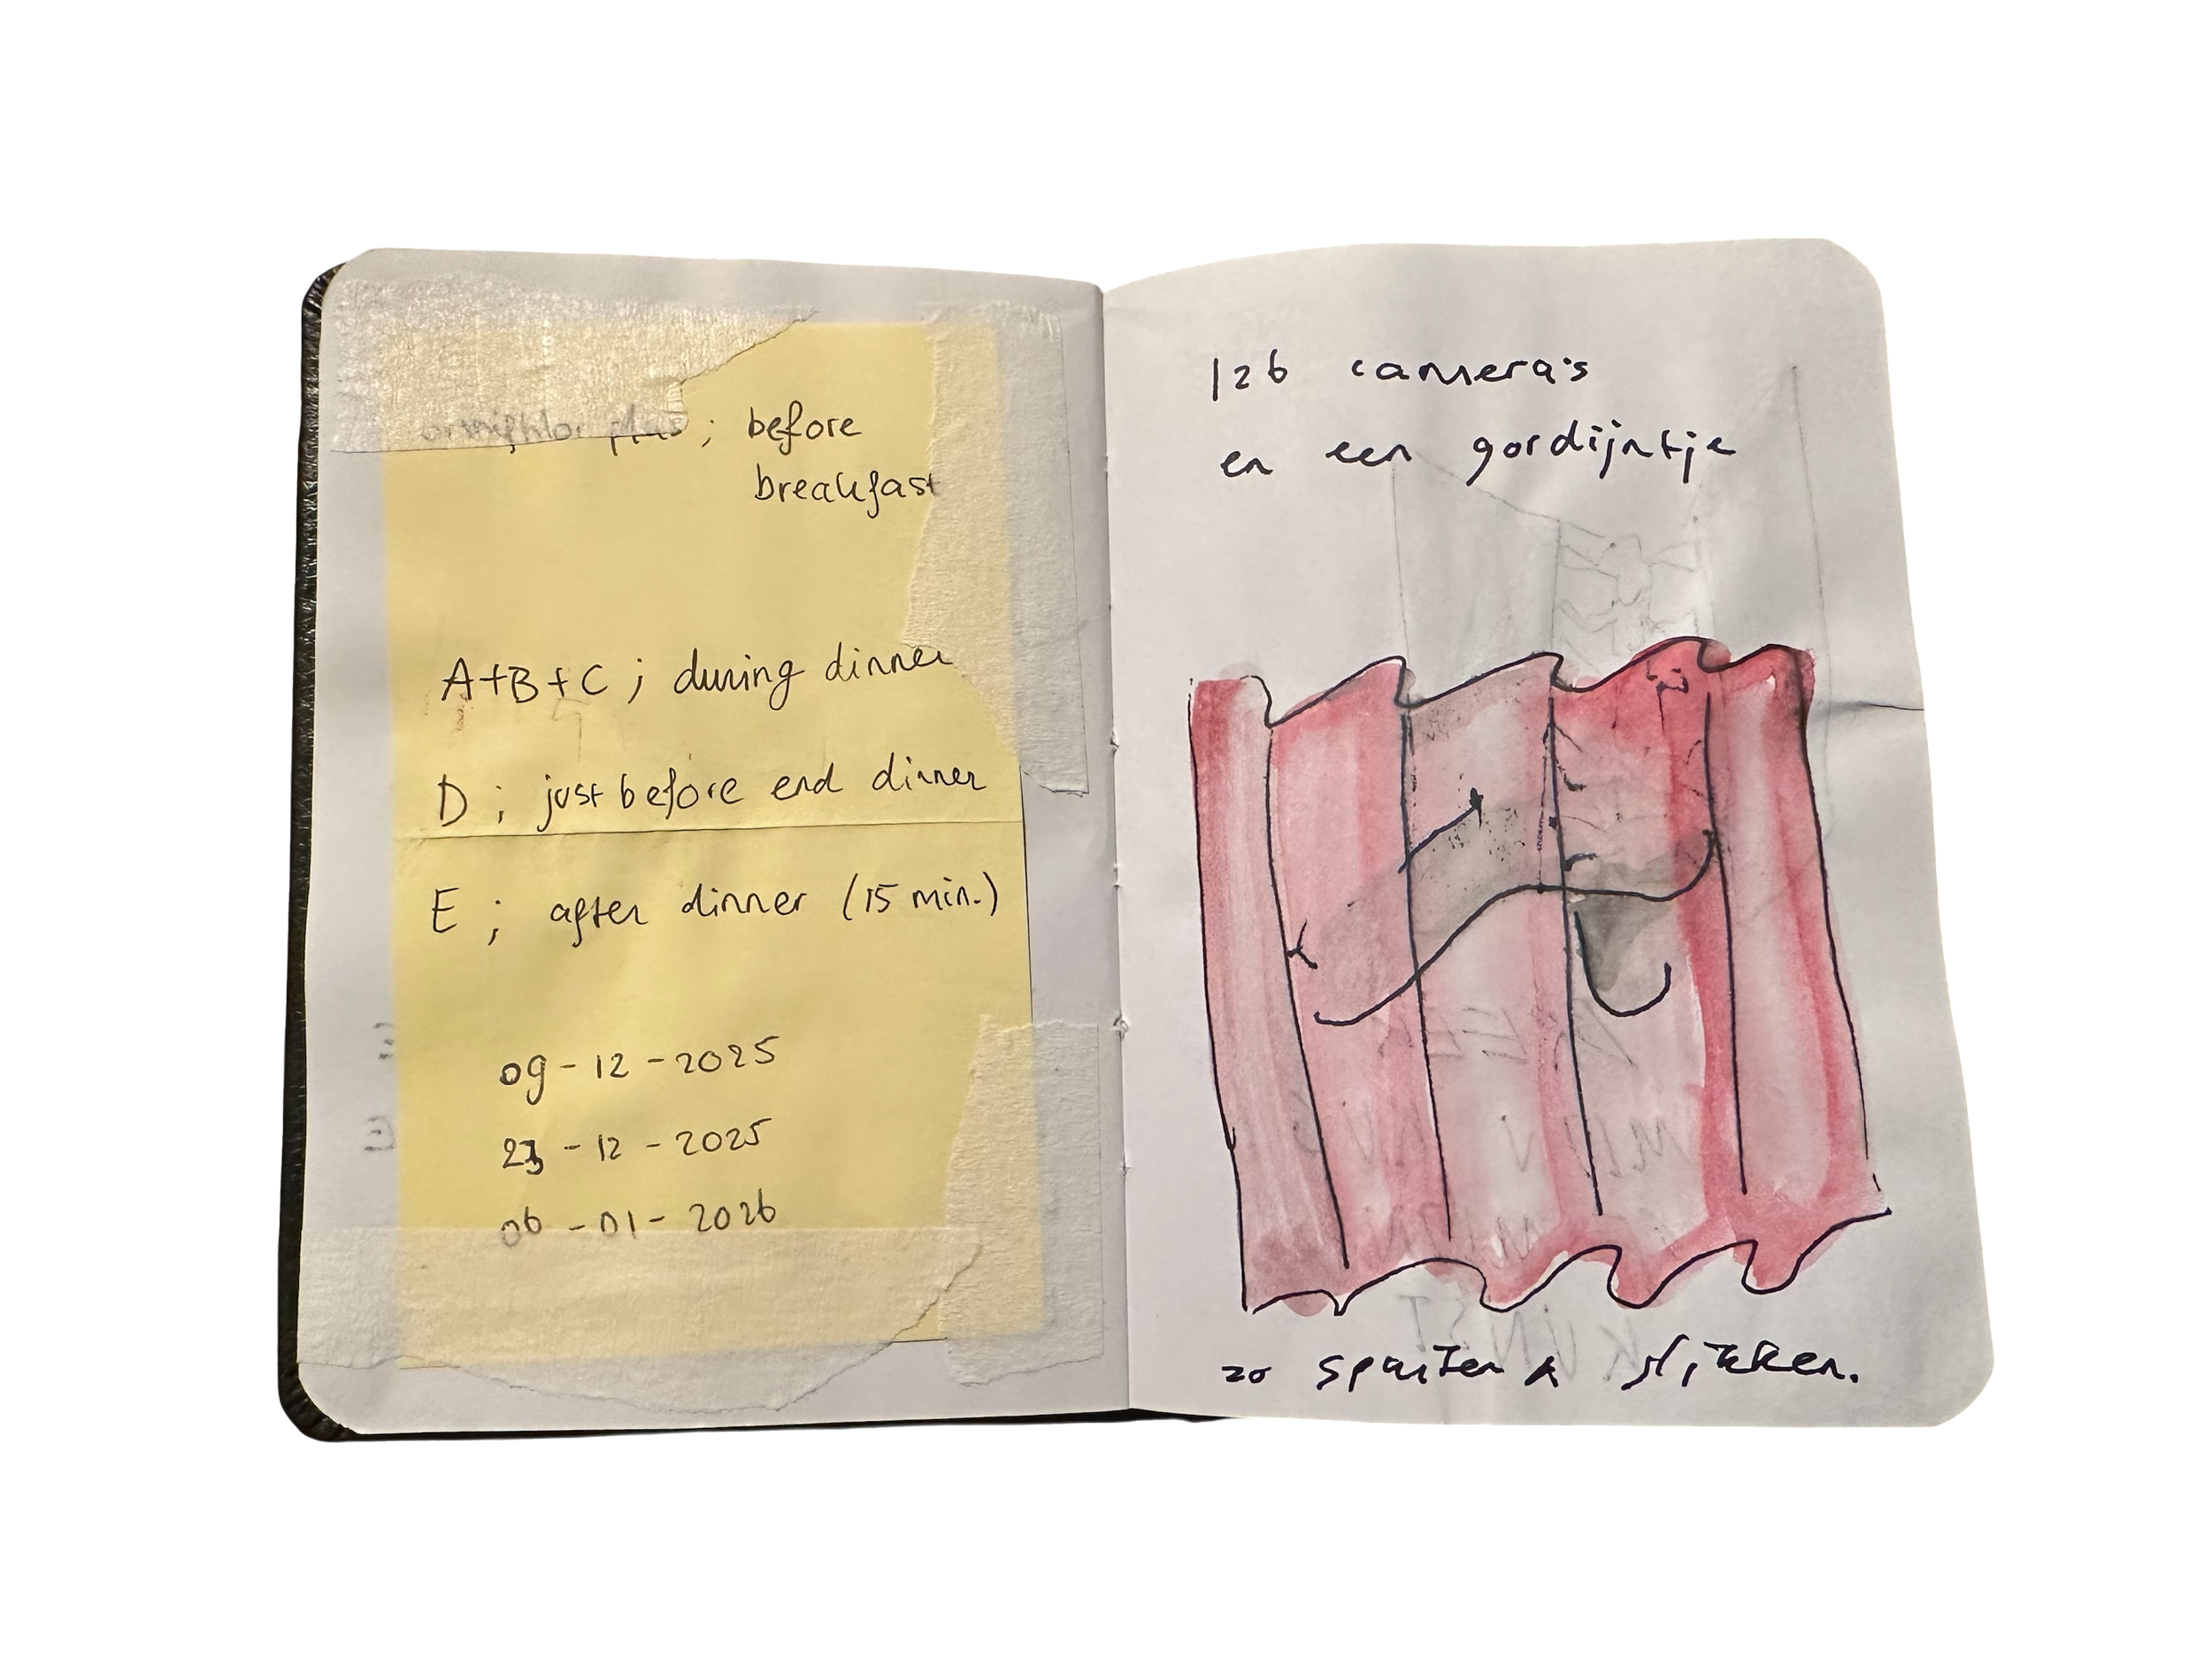 ; before
breakfast
A+B+C ; during dinner
D ; just before end dinner
E ; after dinner (15 min.)
09-12-2025
23-12-2025
06-01-2026
126 camera's
en een gordijntje
zo spuiten & slikken.